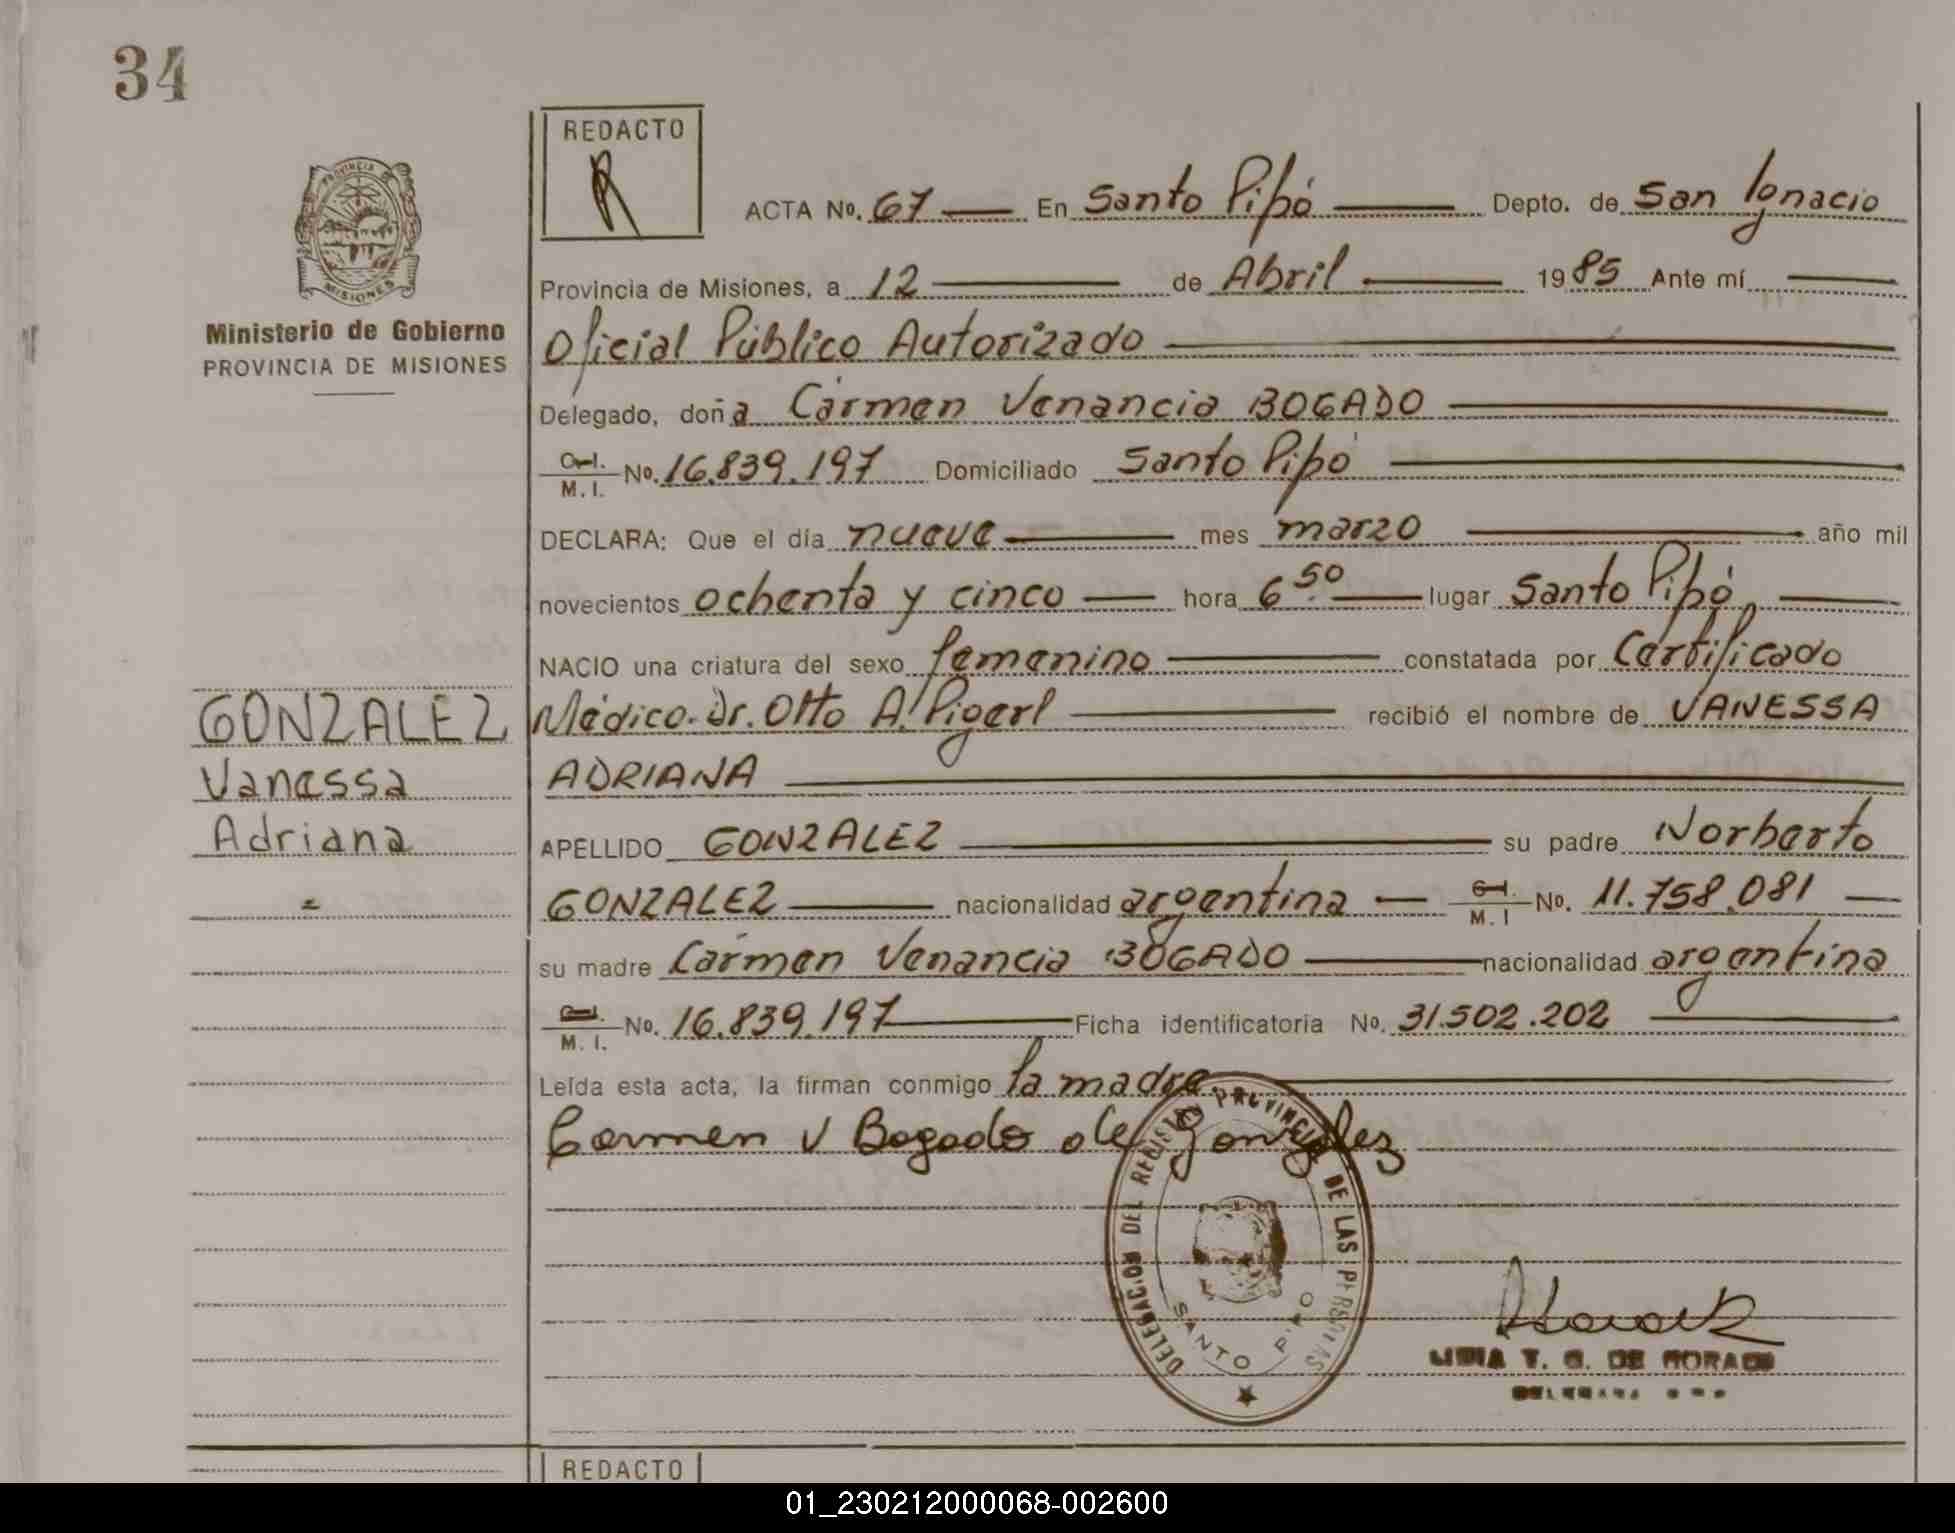 34
REDACTO
ACTA No. 67 En Santo Pipó Depto. de San Ignacio
PROVINCIA
MISIONES
Provincia de Misiones, a 12 de Abril 1985 Ante mí
Ministerio de Gobierno
PROVINCIA DE MISIONES
Oficial Público Autorizado
Delegado, doña Cármen Venancia BOGADO
C.I. M.I. No. 16.839.197 Domiciliado Santo Pipó
DECLARA: Que el día nueve mes marzo año mil
novecientos ochenta y cinco hora 6 50 lugar Santo Pipó,
NACIO una criatura del sexo femenino constatada por Certificado
GONZALEZ Médico. Dr. Otto A. Pigerl recibió el nombre de VANESSA
Vanessa ADRIANA
Adriana APELLIDO GONZALEZ su padre Norberto
GONZALEZ nacionalidad argentina C.I. M.I No. 11.758.081
su madre Cármen Venancia BOGADO nacionalidad argentina
C.I. M.I. No. 16.839.197 Ficha identificatoria No. 31.502.202
Leída esta acta, la firman conmigo la madre
Carmen V Bogado de Gonzalez
DELEGACION DEL REGISTRO PROVINCIAL DE LAS PERSONAS
SANTO PIPO
T. G. DE
REDACTO
01_230212000068-002600